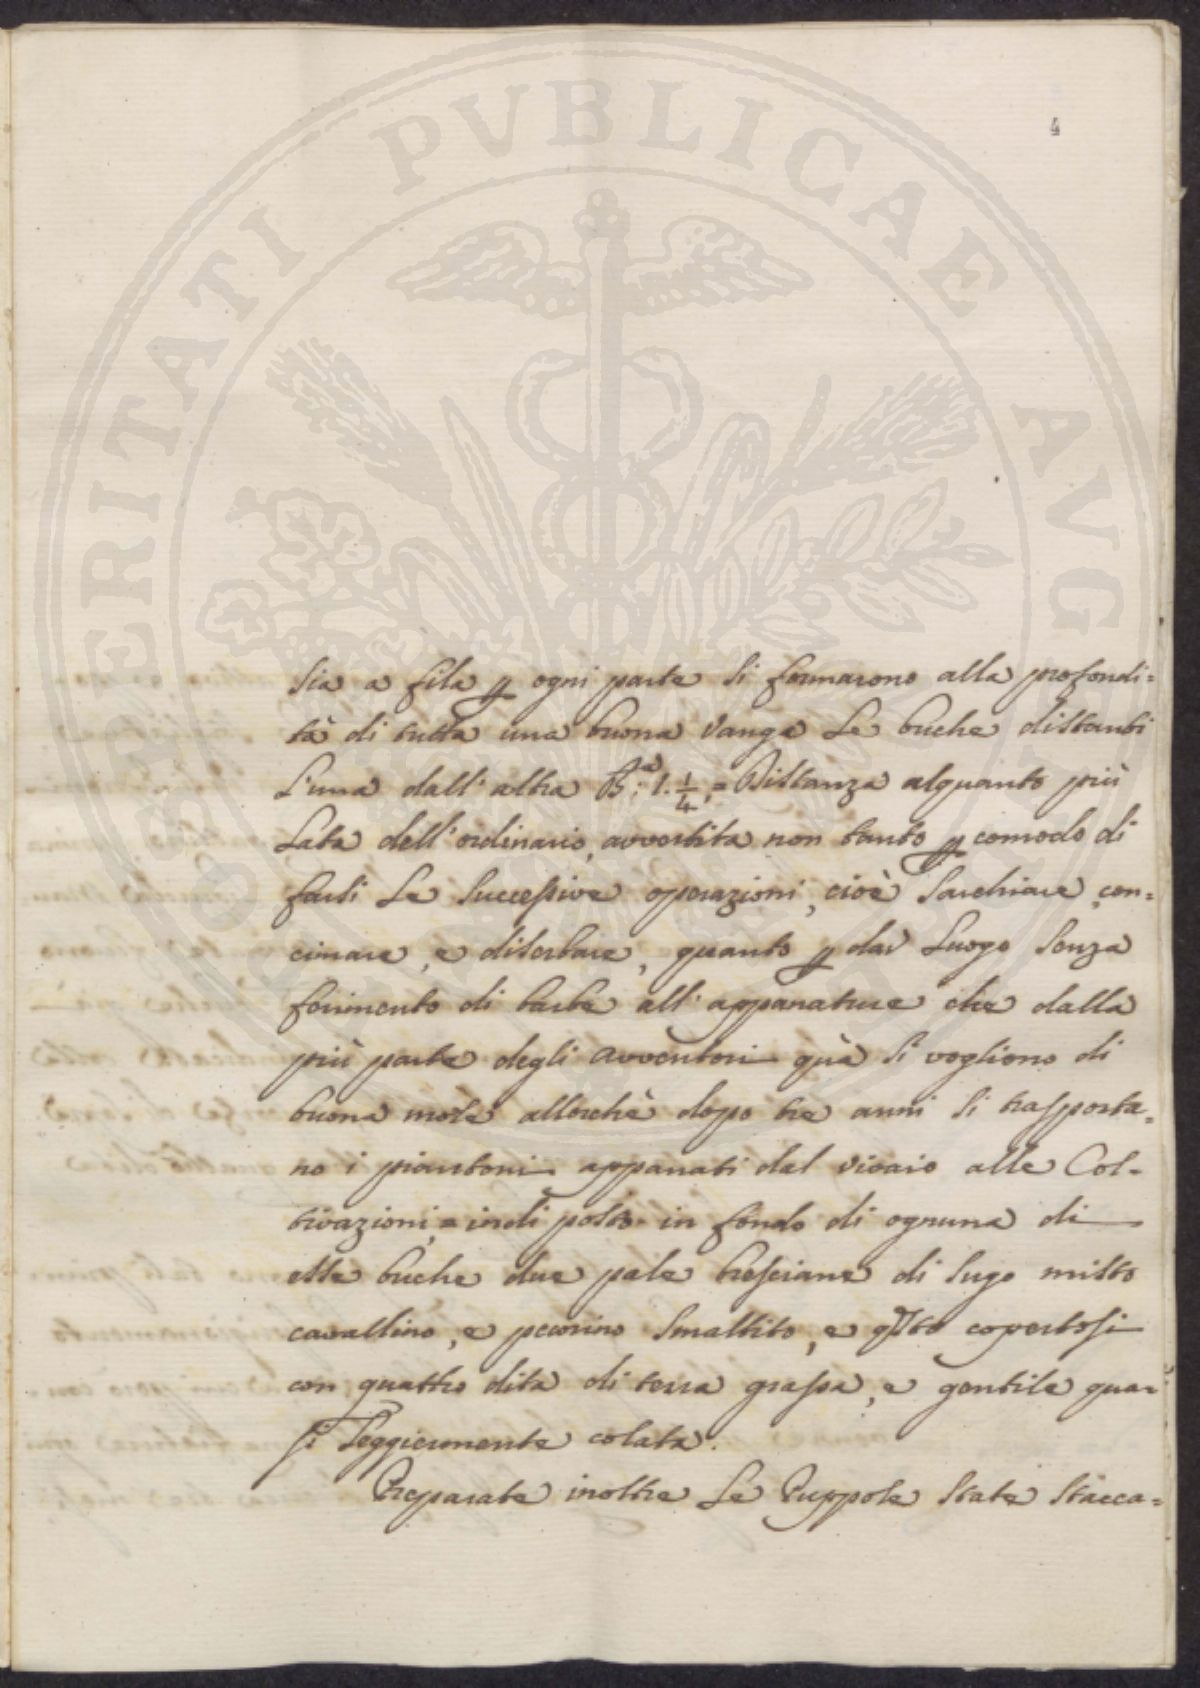 PROSPERITATI PVBLICAE AVG
4
sia a fila p ogni parte si formarono alla profondi=
tà di tutta una buona Vanga Le buche distanti
L'una dall'altra B.ª 1. 1/4, = Distanza alquanto più
Lata dell'ordinario, avvertita non tanto p comodo di
farli Le Successive operazioni, cioè Sarchiare, con=
cimare, e diserbare, quanto p dar Luogo Senza
ferimento di barbe all'appanature che dalla
più parte degli avventori quà Si vogliono di
buona mole allorchè dopo tre anni Si trasporta=
no i piantoni appanati dal vivaio alle Col=
tivazioni, = indi posto in fondo di ognuna di
esse buche due pale bresciane di Sugo misto
cavallino, e pecorino Smaltito, e qsto copertosi
con quattro dita di terra grassa, e gentile qua=
si Leggiermente colata.
Preparate inoltre Le Puppole State Stacca=